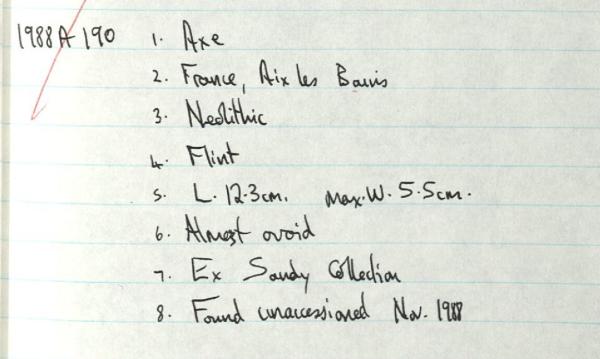 1988 A 190 1. Axe
2. France, Aix les Bains
3. Neolithic
4. Flint
5. L. 12.3cm. Max.W. 5.5cm.
6. Almost ovoid
7. Ex Sandy Collection
8. Found unaccessioned Nov. 1988